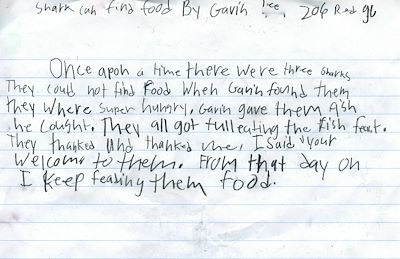 Shark can find food By Gavin Lee 206 Red
Once apon a time there were three sharks
They could not find Food When Gavin found them
they where super hungry. Gavin gave them fish
he cought. They all got full eating the Fish feast.
They thanked and thanked me, I said "your
Welcome to them. From that day on
I keep feading them food.